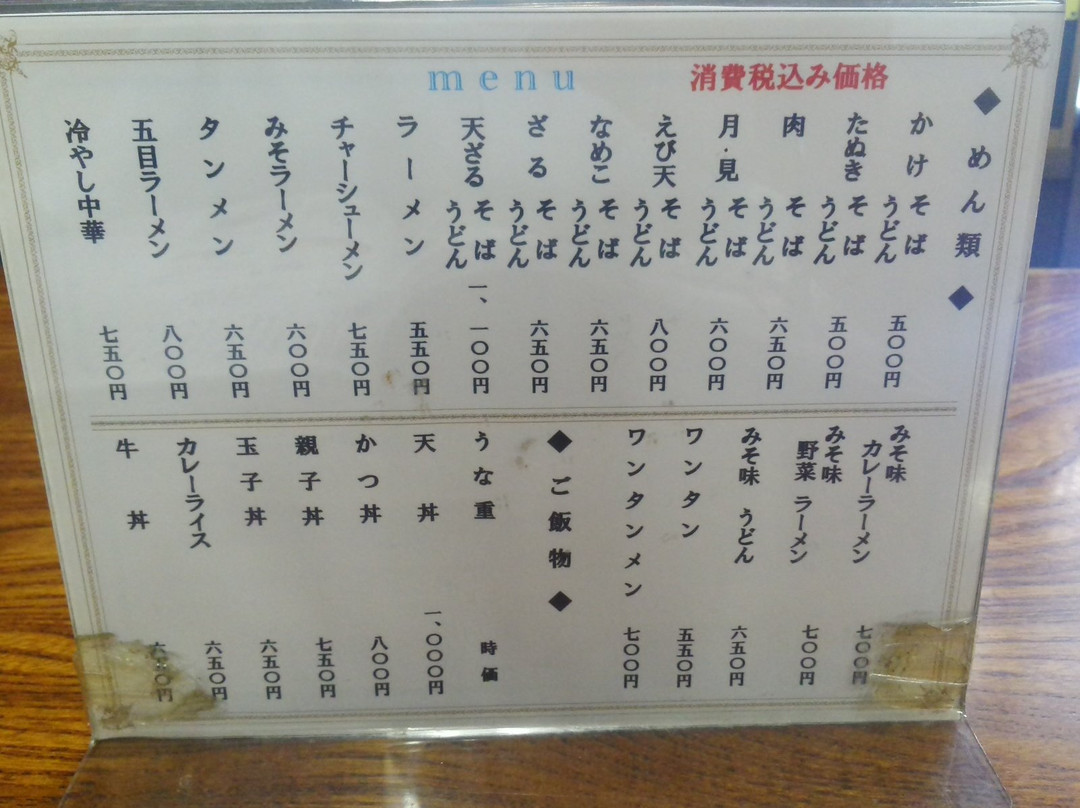 menu
消費税込み価格
◆めん類◆
かけ そば うどん 五〇〇円
たぬき そば うどん 五〇〇円
肉 そば うどん 六五〇円
月・見 そば うどん 六〇〇円
えび天 そば うどん 八〇〇円
なめこ そば うどん 六五〇円
ざる そば うどん 六五〇円
天ざる そば うどん 一、一〇〇円
ラーメン 五五〇円
チャーシューメン 七五〇円
みそラーメン 六〇〇円
タンメン 六五〇円
五目ラーメン 八〇〇円
冷やし中華 七五〇円
みそ味 カレーラーメン 七〇〇円
みそ味 野菜ラーメン 七〇〇円
みそ味 うどん 六五〇円
ワンタン 五五〇円
ワンタンメン 七〇〇円
◆ご飯物◆
うな重 時価
天丼 一、〇〇〇円
かつ丼 八〇〇円
親子丼 七五〇円
玉子丼 六五〇円
カレーライス 六五〇円
牛丼